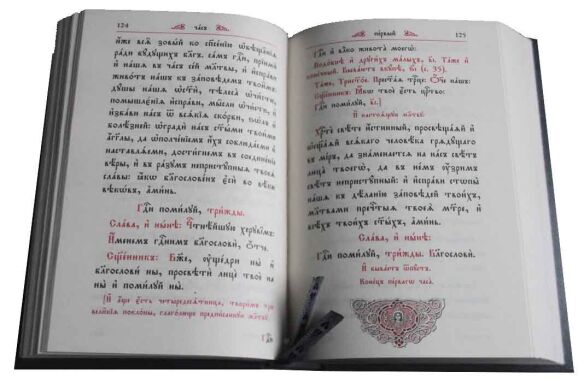 124 часъ
и҆́же всѧ̑ зовы́й ко спасе́нїю ѡ҆бѣща́нїѧ
ра́ди бꙋ́дꙋщихъ бл҃гъ. са́мъ гдⷭ҇и, прїимѝ
и҆ на́шѧ въ ча́съ се́й мл҃твы, и҆ и҆спра́ви
живо́тъ на́шъ къ за́повѣдемъ твои̑мъ.
дꙋ́шы на́шѧ ѡ҆ст҃ѝ, тѣлеса̀ ѡ҆чи́сти,
помышлє́нїѧ и҆спра́ви, мы̑сли ѡ҆чи́сти, и҆
и҆зба́ви на́съ ѿ всѧ́кїѧ ско́рби, ѕѡ́лъ и҆
болѣ́зней: ѡ҆градѝ на́съ ст҃ы́ми твои́ми
а҆́гг҃лы, да ѡ҆полче́нїемъ и҆́хъ соблюда́еми и҆
наставлѧ́еми, дости́гнемъ въ соедине́нїе
вѣ́ры, и҆ въ ра́зꙋмъ непристꙋ́пныѧ твоеѧ̀
сла́вы: ꙗ҆́кѡ бл҃гослове́нъ є҆сѝ во вѣ́ки
вѣкѡ́въ, а҆ми́нь.
Гдⷭ҇и поми́лꙋй, три́жды.
Сла́ва, и҆ ны́нѣ: Чⷭ҇тнѣ́йшꙋю херꙋві̑мъ:
И҆́менемъ гдⷭ҇нимъ бл҃гословѝ, ѻ҆́тче.
Сщ҃е́нникъ: Бж҃е, оу҆ще́дри ны̀ и҆
бл҃гословѝ ны̀, просвѣтѝ лицѐ твоѐ на
ны̀ и҆ поми́лꙋй ны̀.
[И҆ а҆́ще є҆́сть четыредесѧ́тница, твори́мъ три
вели̑кїѧ покло́ны, глаго́люще предпи́саннꙋю мл҃твꙋ:]
Гдⷭ҇и
пе́рвый 125
Гдⷭ҇и и҆ влⷣко живота̀ моегѡ̀:
Подо́бнѣ и҆ дрꙋги́хъ ма́лыхъ, в҃і. Та́же и҆
коне́чный. Быва́ютъ вкꙋ́пѣ, ѕ҃і (с. 35).
Та́же, Трист҃о́е. Прест҃а́ѧ трⷪ҇це: Ѻ҆́ч҃е на́шъ:
Сщ҃е́нникъ: Ꙗ҆́кѡ твоѐ є҆́сть црⷭ҇тво:
Гдⷭ҇и поми́лꙋй, в҃і.]
И҆ настоѧ́щꙋю мл҃твꙋ:
Хрⷭ҇тѐ свѣ́те и҆́стинный, просвѣща́ѧй и҆
ѡ҆сщ҃а́ѧй всѧ́каго человѣ́ка грѧдꙋ́щаго
въ мі́ръ, да зна́менаетсѧ на на́съ свѣ́тъ
лица̀ твоегѡ̀, да въ не́мъ оу҆́зримъ
свѣ́тъ непристꙋ́пный: и҆ и҆спра́ви стѡпы̀
на́шѧ къ дѣ́ланїю за́повѣдей твои́хъ,
мл҃твами пречⷭ҇тыѧ твоеѧ̀ мт҃ре, и҆
всѣ́хъ твои́хъ ст҃ы́хъ, а҆ми́нь.
Сла́ва, и҆ ны́нѣ:
Гдⷭ҇и поми́лꙋй, три́жды. Бл҃гословѝ.
И҆ быва́етъ ѿпꙋ́стъ.
Коне́цъ пе́рвагѡ часа̀.